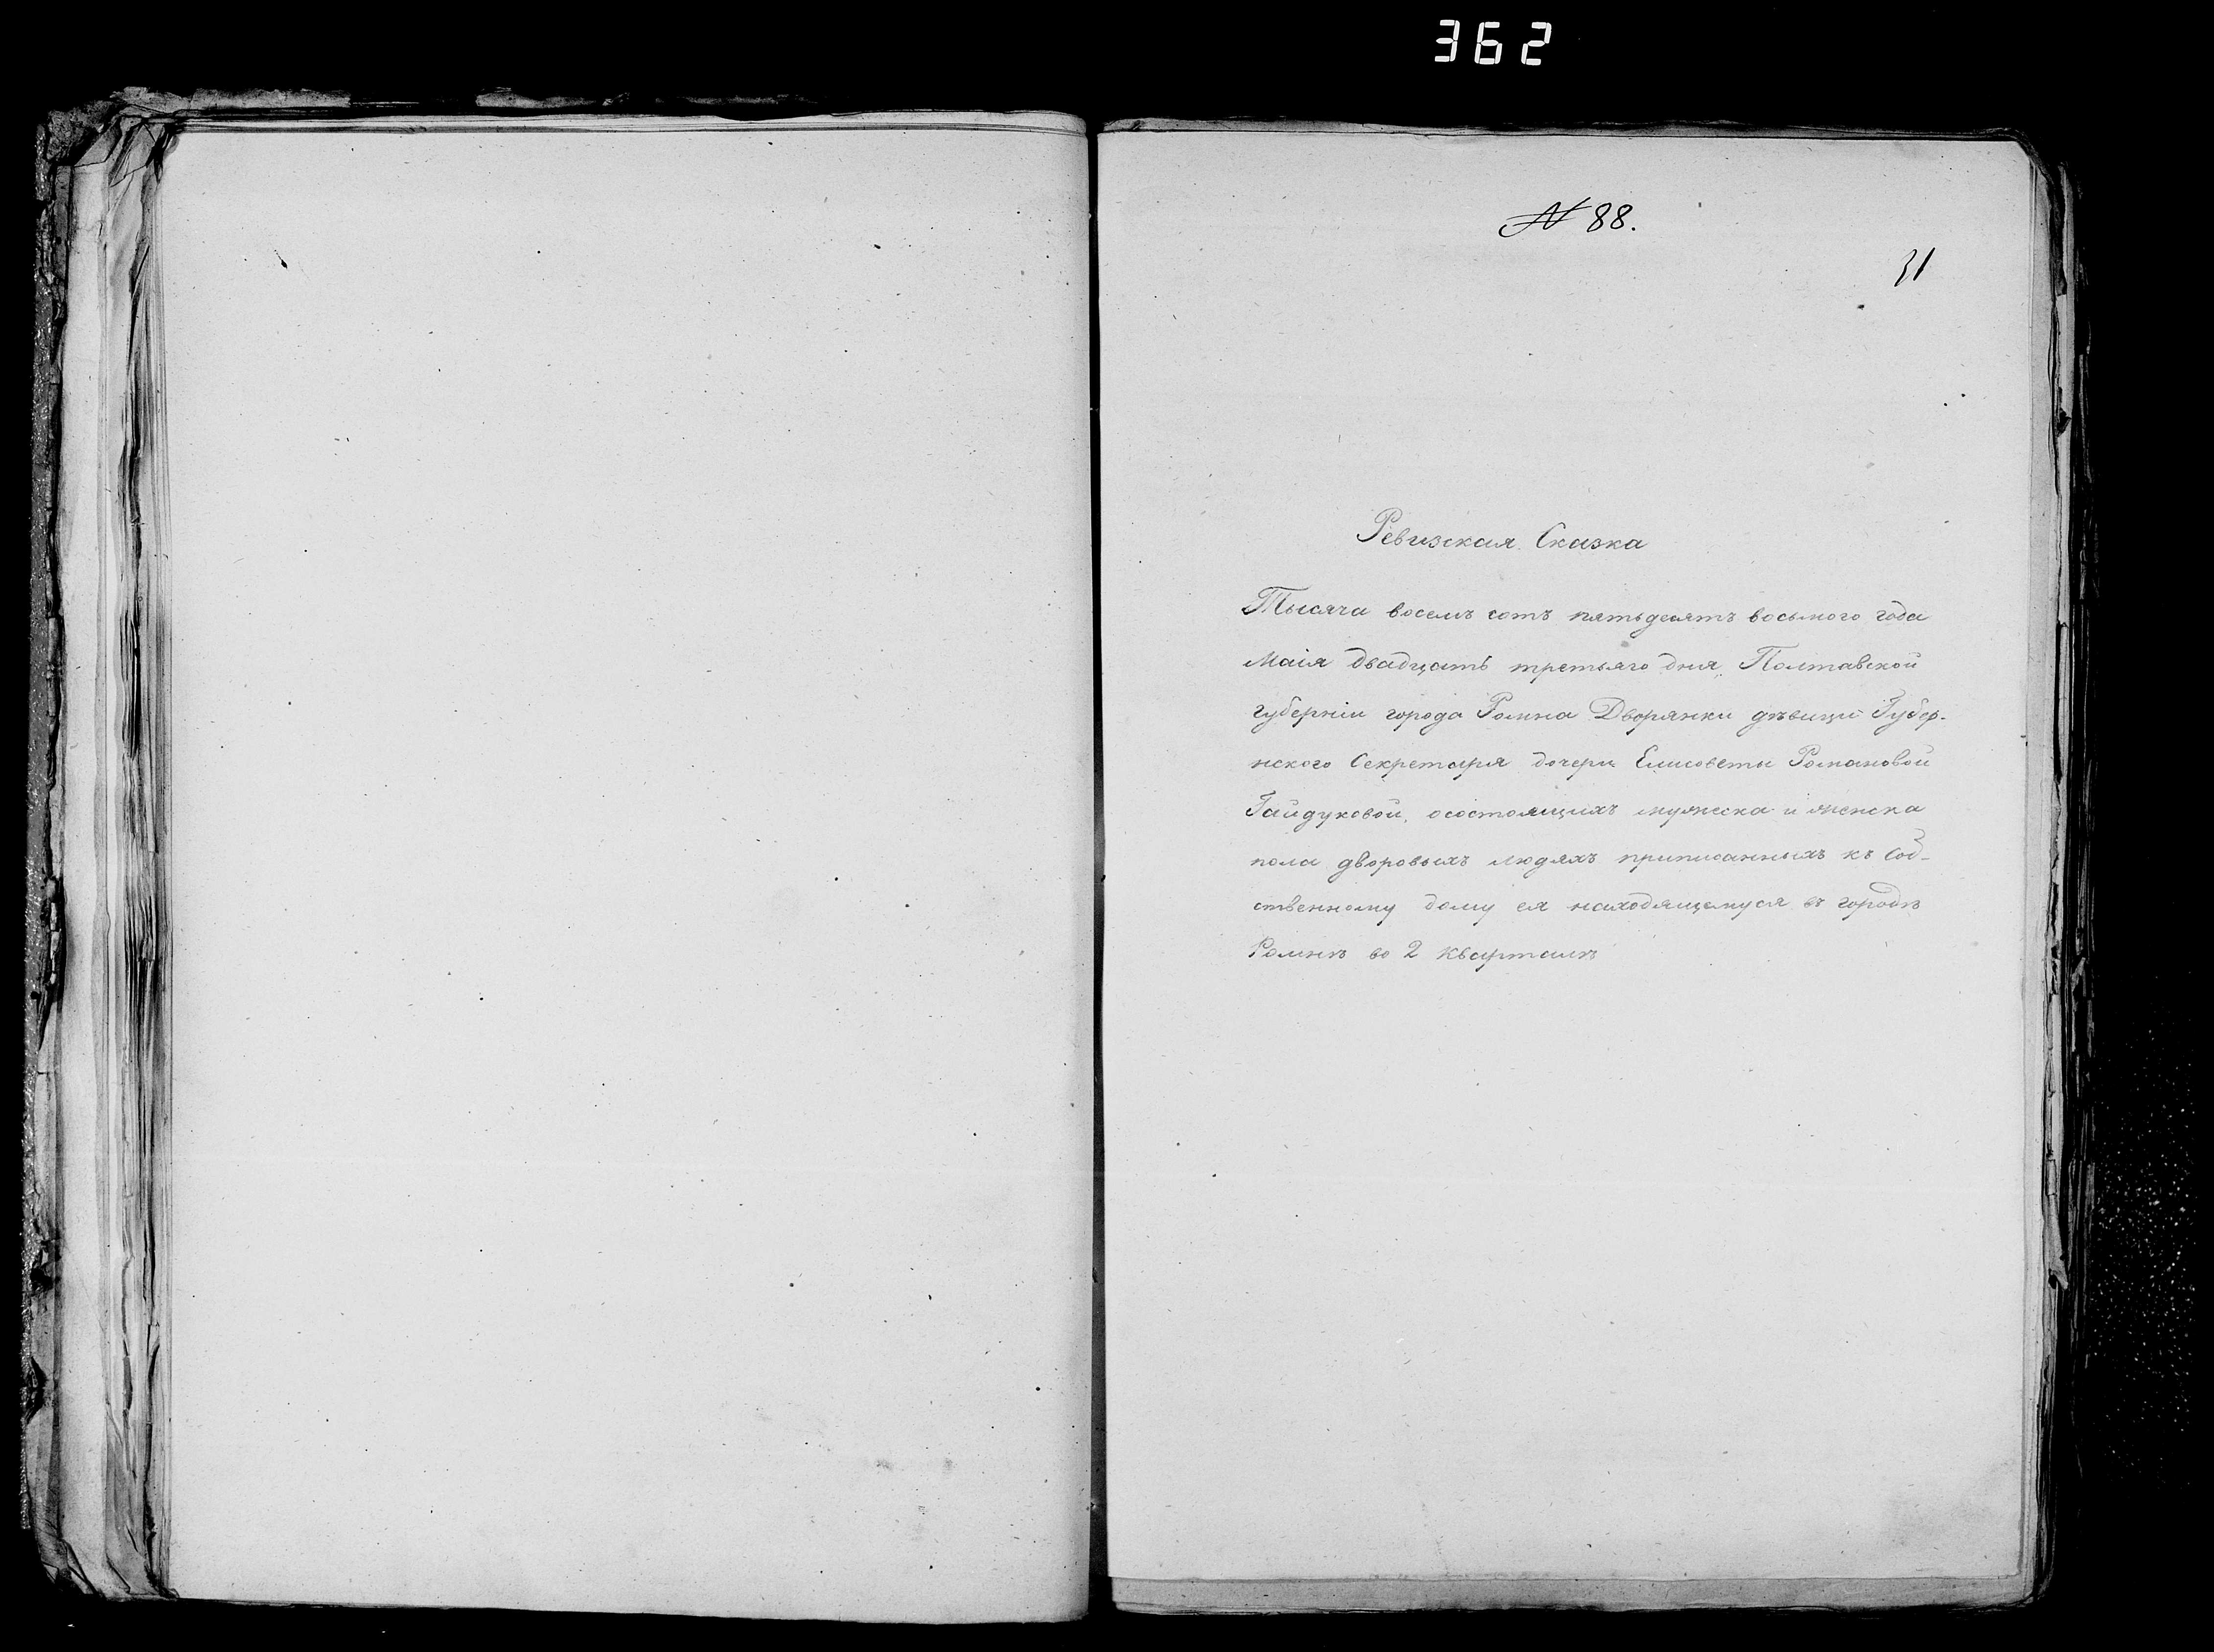 362
№ 88.
31
Ревизская Сказка
Тысяча восемъ сотъ пятьдесятъ восьмого года
Маія двадцать третьяго дня, Полтавской
губерніи города Ромна Дворянки дѣвицы Губер-
нского Секретаря дочери Елисоветы Романовой
Гайдуковой, осостоящихъ мужеска и женска
пола дворовыхъ людяхъ приписанныхъ къ соб-
ственному дому ея находящемуся въ городѣ
Ромнѣ во 2 кварталѣ